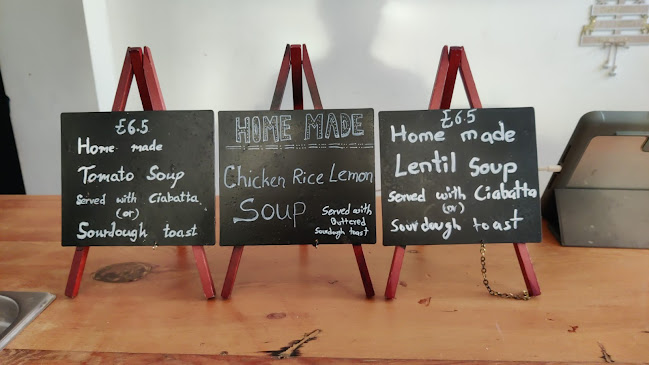 £6.5
Home made
Tomato Soup
Served with Ciabatta
(or)
Sourdough toast
HOME MADE
Chicken Rice Lemon
Soup
Served with
Buttered
Sourdough toast
£6.5
Home made
Lentil Soup
Served with Ciabatta
(or)
Sourdough toast